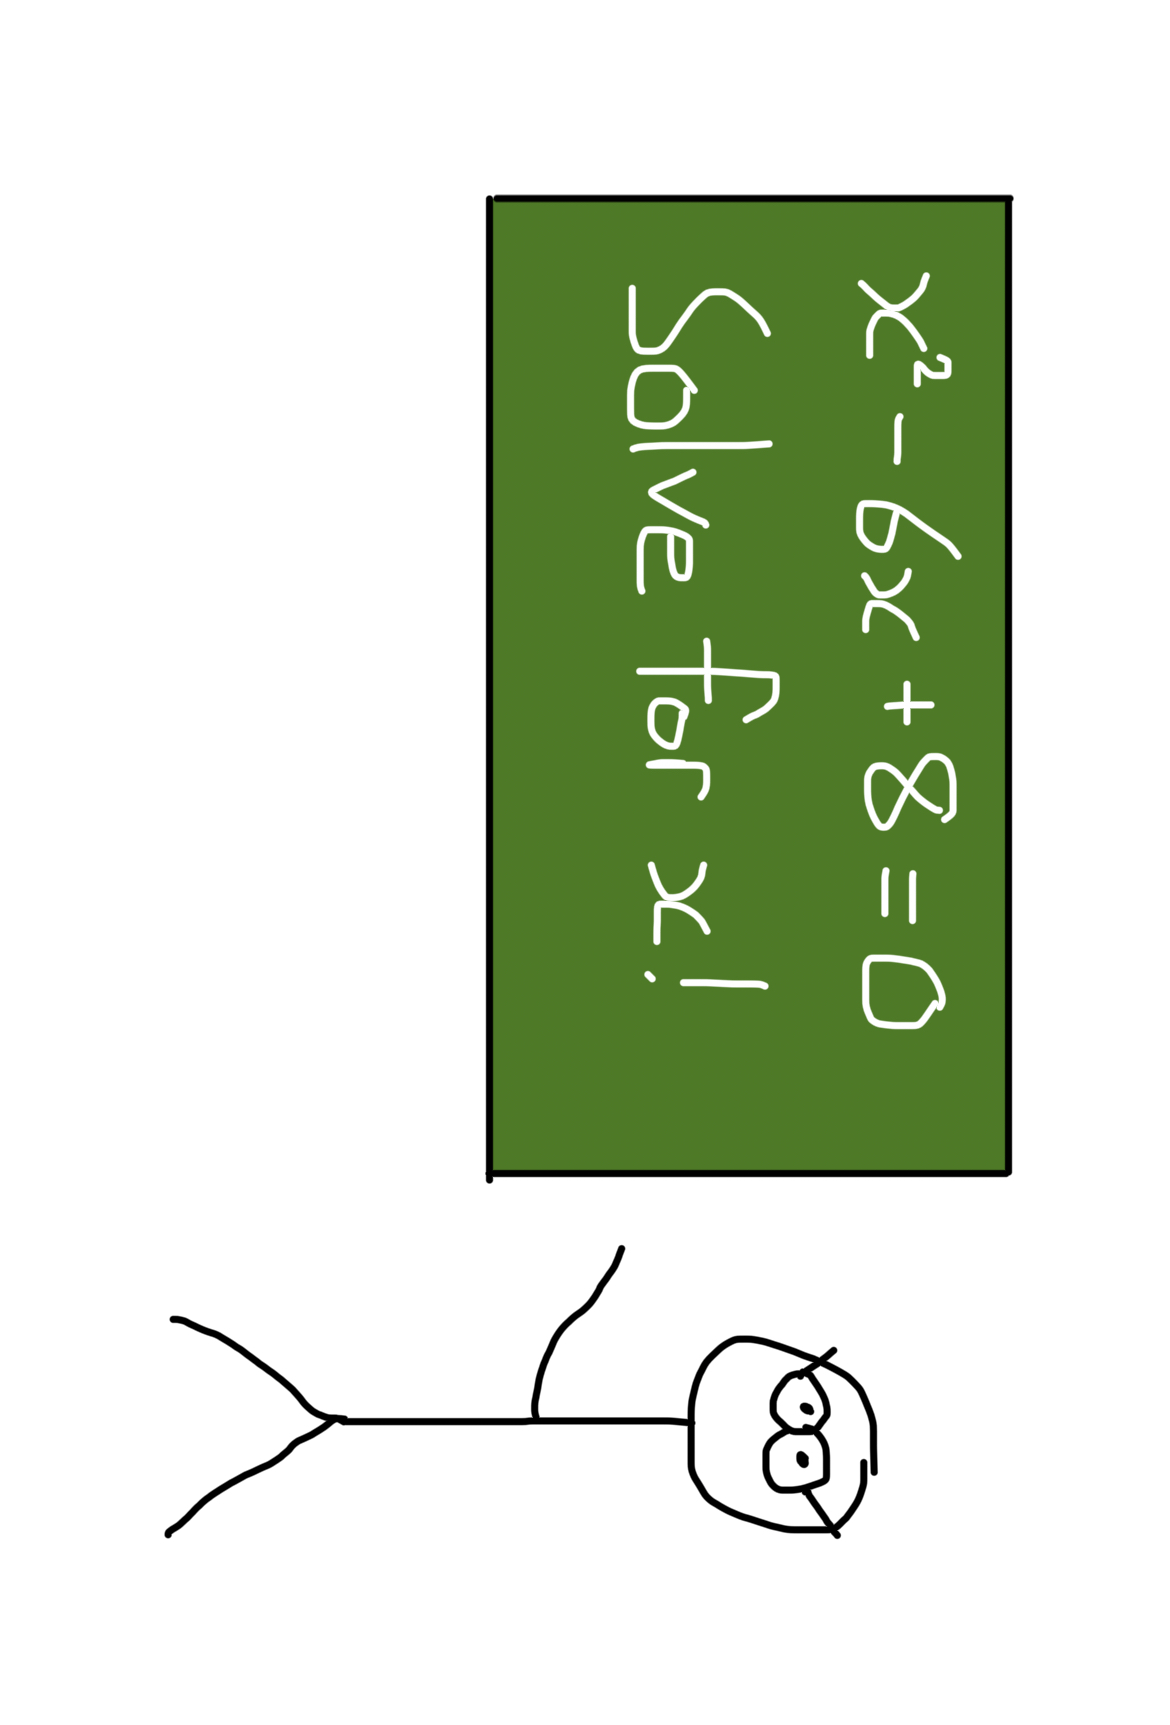 x² - 6x + 8 = 0
Solve for x!